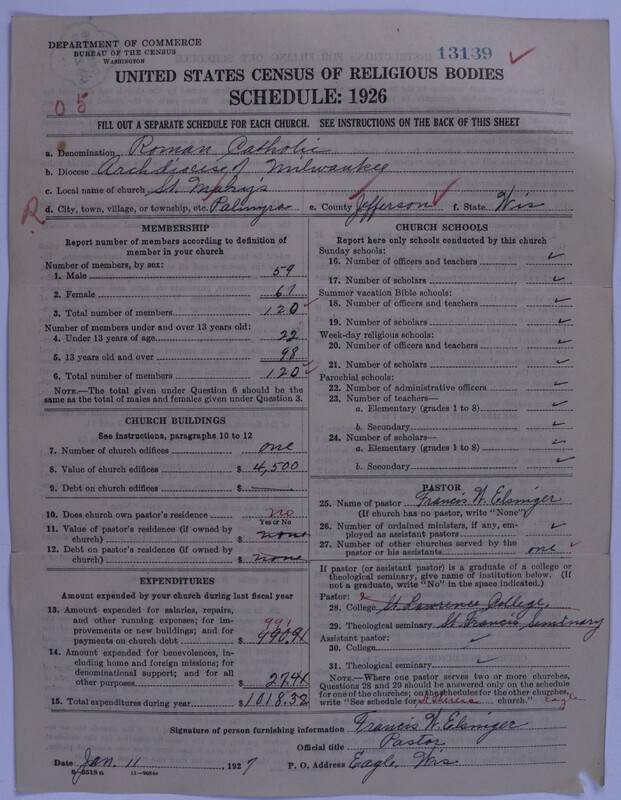 DEPARTMENT OF COMMERCE
BUREAU OF THE CENSUS
WASHINGTON
13139 ✓
UNITED STATES CENSUS OF RELIGIOUS BODIES
SCHEDULE: 1926
05
FILL OUT A SEPARATE SCHEDULE FOR EACH CHURCH. SEE INSTRUCTIONS ON THE BACK OF THIS SHEET
a. Denomination Roman Catholic
b. Diocese Archdiocese of Milwaukee
c. Local name of church St.
R
d. City, town, village, or township, etc. Palmyra e. County Jefferson f. State Wis
MEMBERSHIP
Report number of members according to definition of member in your church
Number of members, by sex:
1. Male 59
2. Female 61
3. Total number of members 120 ✓
Number of members under and over 13 years old:
4. Under 13 years of age 22
5. 13 years old and over 98
6. Total number of members 120 ✓
NOTE.—The total given under Question 6 should be the same as the total of males and females given under Question 3.
CHURCH BUILDINGS
See instructions, paragraphs 10 to 12
7. Number of church edifices one
8. Value of church edifices $ 4,500
9. Debt on church edifices $
10. Does church own pastor's residence no
Yes or No
11. Value of pastor's residence (if owned by church) $ none
12. Debt on pastor's residence (if owned by church) $ none
EXPENDITURES
Amount expended by your church during last fiscal year
13. Amount expended for salaries, repairs, and other running expenses; for improvements or new buildings; and for payments on church debt $ 990.91
991
14. Amount expended for benevolences, including home and foreign missions; for denominational support; and for all other purposes $ 27.41
15. Total expenditures during year $ 1018.32
CHURCH SCHOOLS
Report here only schools conducted by this church
Sunday schools:
16. Number of officers and teachers ✓
17. Number of scholars ✓
Summer vacation Bible schools:
18. Number of officers and teachers ✓
19. Number of scholars ✓
Week-day religious schools:
20. Number of officers and teachers ✓
21. Number of scholars ✓
Parochial schools:
22. Number of administrative officers ✓
23. Number of teachers—
a. Elementary (grades 1 to 8) ✓
b. Secondary ✓
24. Number of scholars—
a. Elementary (grades 1 to 8) ✓
b. Secondary ✓
PASTOR
25. Name of pastor Francis W. Elsinger
(If church has no pastor, write "None")
26. Number of ordained ministers, if any, employed as assistant pastors ✓
27. Number of other churches served by the pastor or his assistants one ✓
If pastor (or assistant pastor) is a graduate of a college or theological seminary, give name of institution below. (If not a graduate, write "No" in the space indicated.)
Pastor:
28. College St. Lawrence College,
29. Theological seminary St. Francis Seminary
Assistant pastor:
30. College ✓
31. Theological seminary ✓
NOTE.—Where one pastor serves two or more churches, Questions 28 and 29 should be answered only on the schedule for one of the churches; on the schedules for the other churches, write "See schedule for St Theresa church." Eagle
Signature of person furnishing information Francis W. Elsinger
Official title Pastor
Date Jan. 11, 1927 P. O. Address Eagle, Wis